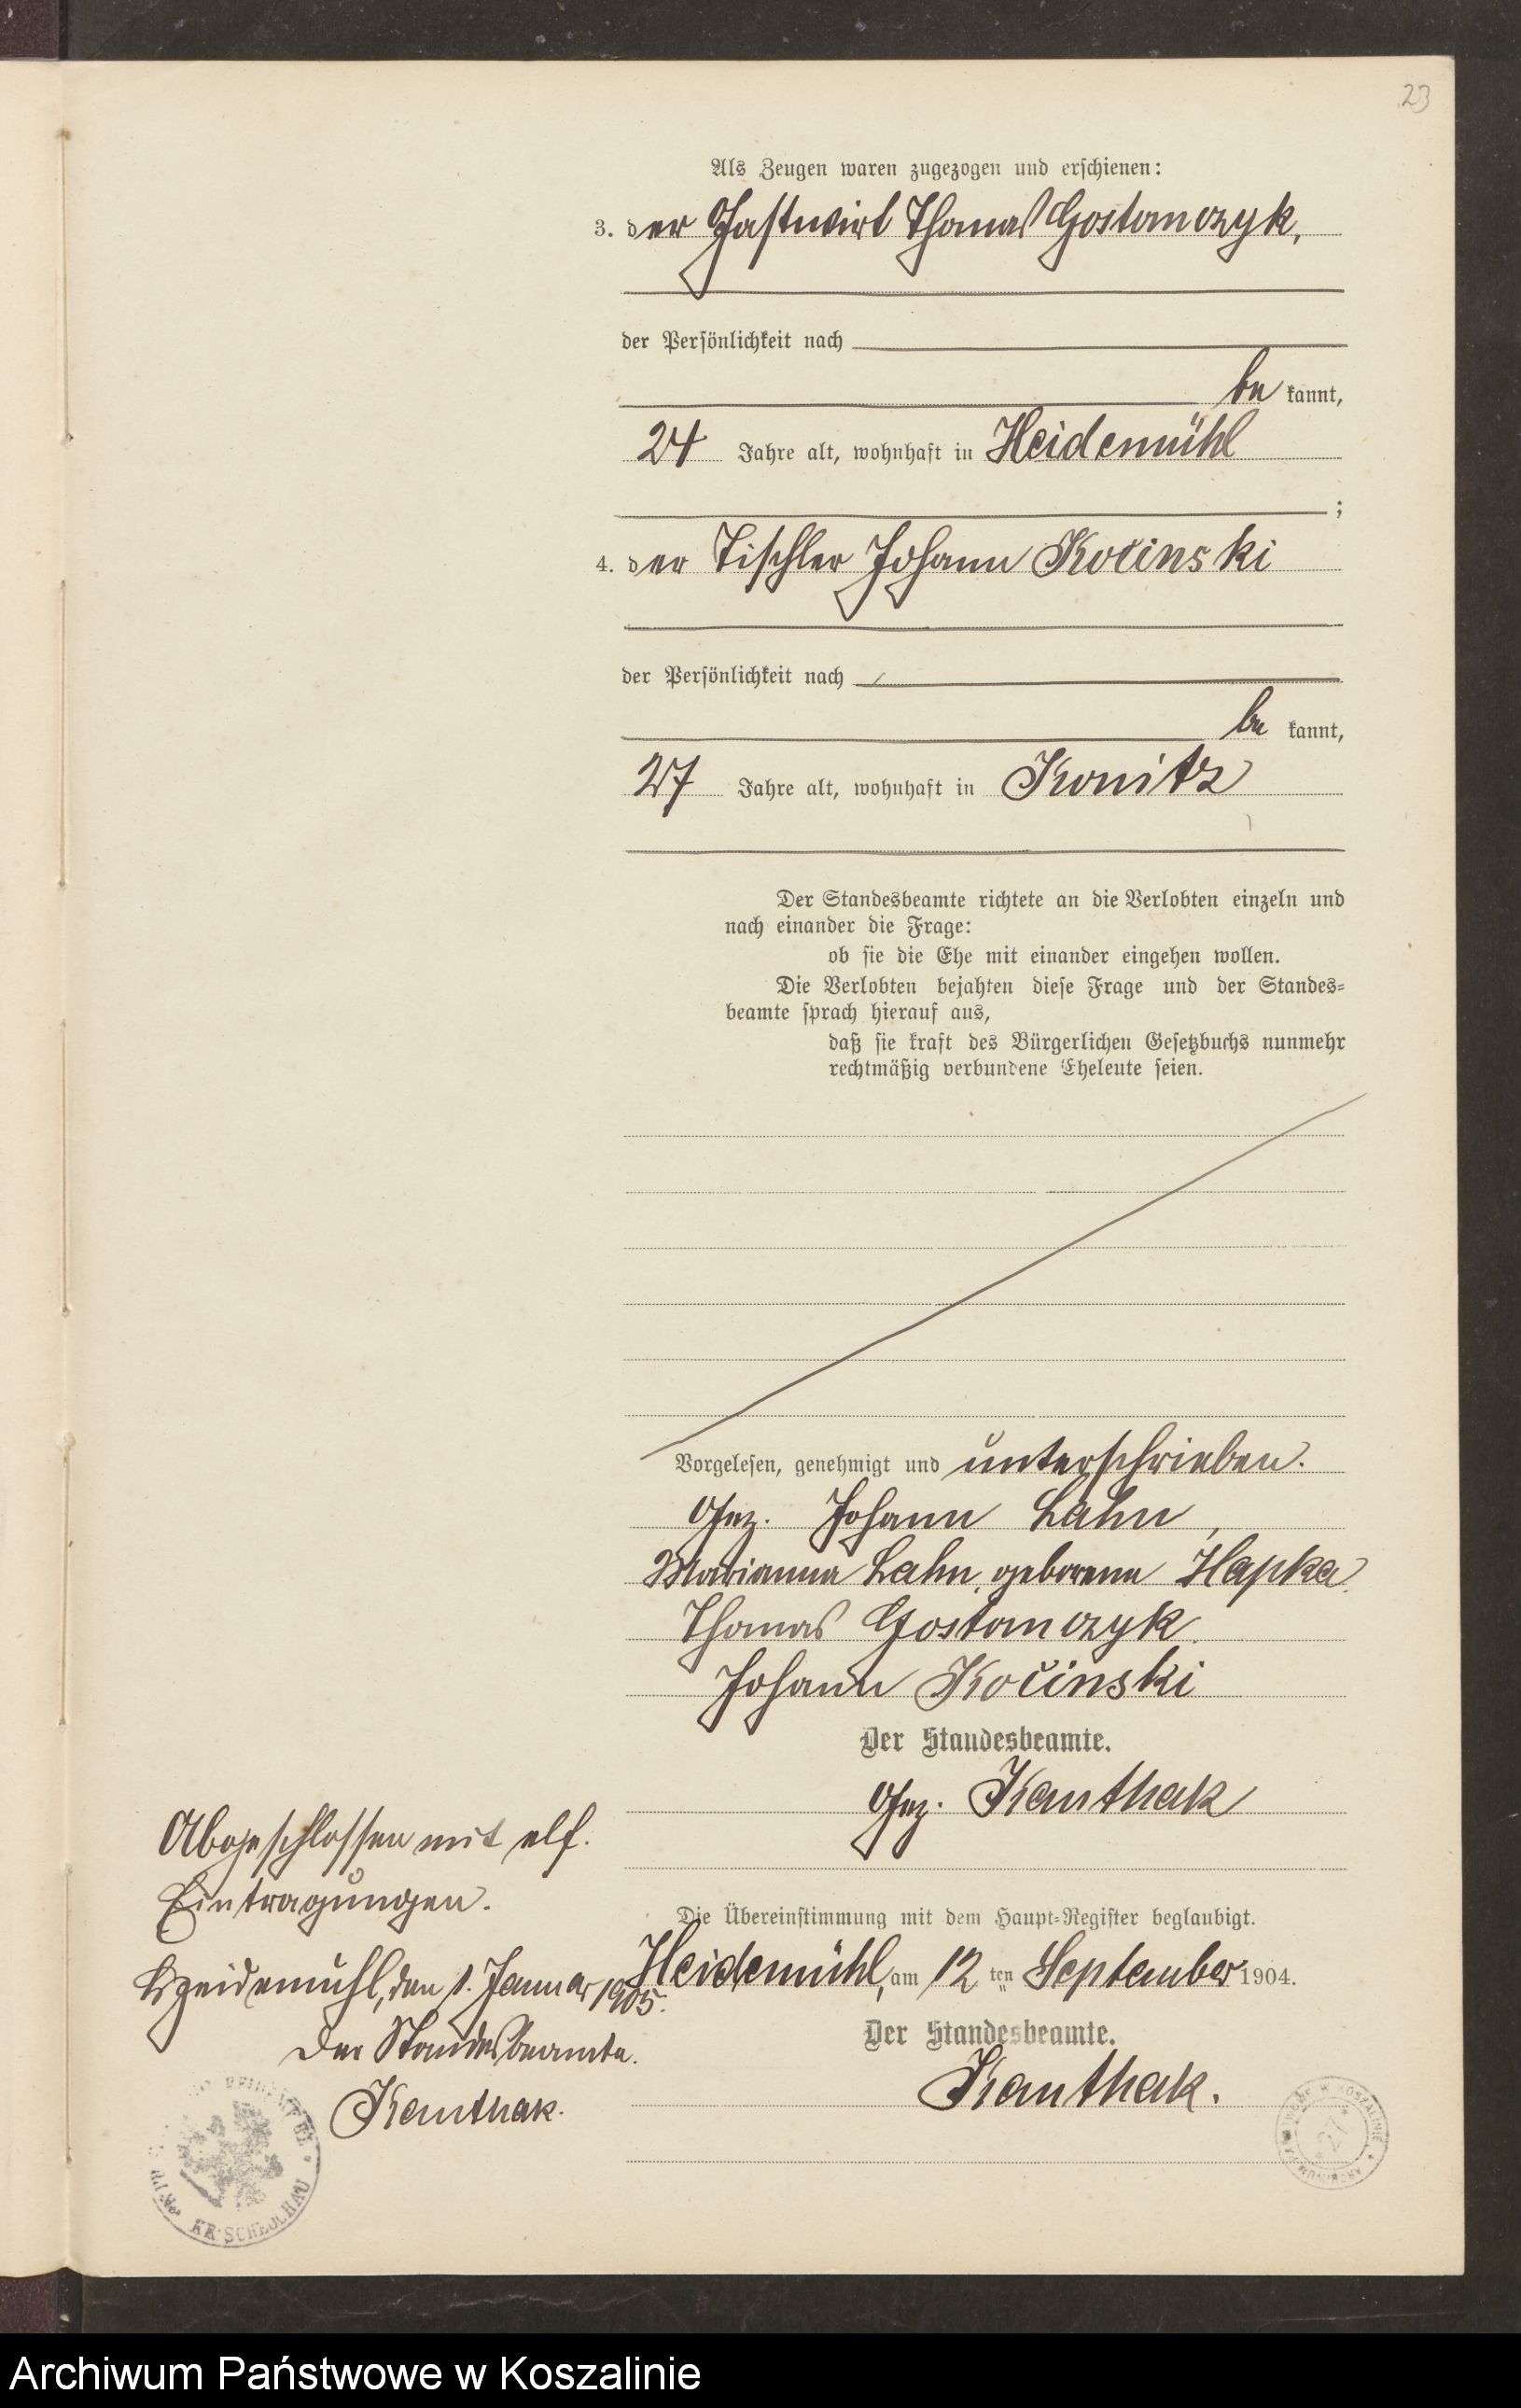 23
Als Zeugen waren zugezogen und erschienen:
3. der Gastwirt Thomas Gostomczyk,
der Persönlichkeit nach
be kannt,
24 Jahre alt, wohnhaft in Heidemühl
;
4. der Tischler Johann Kočinski
der Persönlichkeit nach
be kannt,
27 Jahre alt, wohnhaft in Konitz
Der Standesbeamte richtete an die Verlobten einzeln und
nach einander die Frage:
ob sie die Ehe mit einander eingehen wollen.
Die Verlobten bejahten diese Frage und der Standes-
beamte sprach hierauf aus,
daß sie kraft des Bürgerlichen Gesetzbuchs nunmehr
rechtmäßig verbundene Eheleute seien.
Vorgelesen, genehmigt und unterschrieben.
Gez. Johann Lahn,
Marianna Lahn, geborene Hapka.
Thomas Gostomczyk.
Johann Kočinski
Der Standesbeamte.
Gez. Kanthak
Die Übereinstimmung mit dem Haupt-Register beglaubigt.
Heidemühl, am 12 ten September 1904.
Der Standesbeamte.
Kanthak.
Abgeschlossen mit elf.
Eintragungen.
Heidemühl, den 1. Januar 1905.
Der Standesbeamte.
Kanthak.
KR. SCHLOCHAU
27
Archiwum Państwowe w Koszalinie